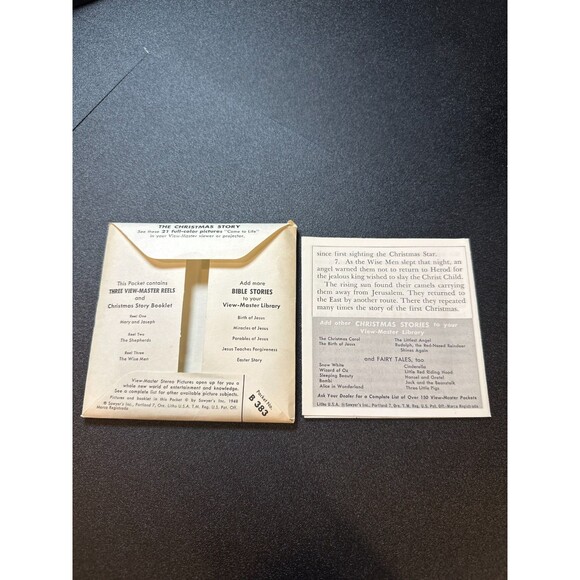 THE CHRISTMAS STORY
See these 21 full-color pictures "Come to Life"
in your View-Master viewer or projector.
This Packet contains
THREE VIEW-MASTER REELS
and
Christmas Story Booklet
Reel One
Mary and Joseph
Reel Two
The Shepherds
Reel Three
The Wise Men
Add more
BIBLE STORIES
to your
View-Master Library
Birth of Jesus
Miracles of Jesus
Parables of Jesus
Jesus Teaches Forgiveness
Easter Story
View-Master Stereo Pictures open up for you a
whole new world of entertainment and knowledge.
See a complete list for other available picture subjects.
Pictures and booklet in this Packet © by Sawyer's Inc., 1948
® Sawyer's Inc., Portland 7, Ore. Litho U.S.A. T.M. Reg. U.S. Pat. Off.
Marca Registrada
Packet No.
B 383
since first sighting the Christmas Star.
7. As the Wise Men slept that night, an
angel warned them not to return to Herod for
the jealous king wished to slay the Christ Child.
The rising sun found their camels carrying
them away from Jerusalem. They returned to
the East by another route. There they repeated
many times the story of the first Christmas.
Add other CHRISTMAS STORIES to your
View-Master Library
The Christmas Carol
The Birth of Jesus
The Littlest Angel
Rudolph, the Red-Nosed Reindeer
Shines Again
and FAIRY TALES, too
Snow White
Wizard of Oz
Sleeping Beauty
Bambi
Alice in Wonderland
Cinderella
Little Red Riding Hood
Hansel and Gretel
Jack and the Beanstalk
Three Little Pigs
Ask Your Dealer for a Complete List of Over 150 View-Master Packets
Litho U.S.A. © Sawyer's Inc., Portland 7, Ore. T.M. Reg. U.S. Pat. Off., Marca Registrada